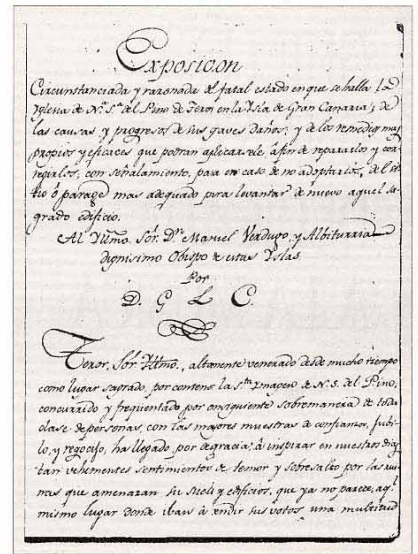 Exposicion
Circunstanciada y razonada del fatal estado en que se halla la
Yglesia de N.ª S.ª del Pino de Teror en la Ysla de Gran Canaria; de
las causas, y progresos de sus graves daños; y de los remedios mas
propios y eficaces que podran aplicarsele, à fin de repararlos y cor-
regirlos; con señalamiento, para en caso de no adoptarlos, del si-
tio ò parage mas adequado para levantar de nuevo aquel sa-
grado edificio.
Al Yltmo. Sôr. Dr. Manuel Verdugo, y Albiturria
dignisimo Obispo de estas Yslas.
Por
D. G L C.
Teror, Sôr. Yltmo., altamente venerado desde mucho tiempo
como lugar sagrado, por contener la S.ta Ymagen de N. S. del Pino,
concurrido y freqüentado por consiguiente sobremanera de toda
clase de personas, con las mayores muestras de confianza, jubi-
lo, y regocijo, ha llegado, por desgracia, à inspirar en nuestros dias
tan vehementes sentimientos de temor y sobresalto por las rui-
nas que amenazan su suelo y edificios, que ya no parece, aql
mismo lugar donde iban à rendir sus votos una multitud